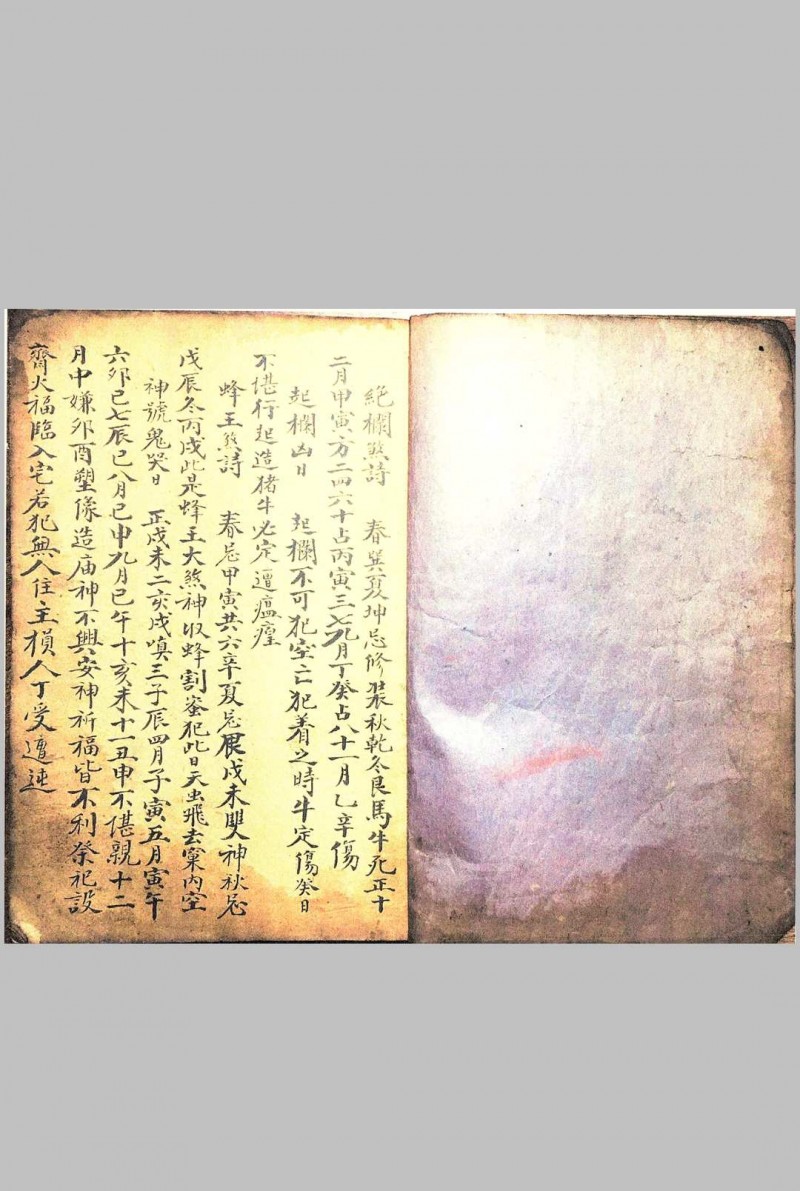 絕欄煞詩　春巽夏坤忌修裝秋乾冬艮馬牛死正十
二月甲寅方二四六十占丙寅三七九月丁癸占八十一月乙辛傷
起欄凶日　起欄不可犯空亡犯着之時牛定傷癸日
不堪行起造猪牛必定遭瘟瘽
蜂王煞詩　春忌甲寅共六辛夏忌戊未雙神秋忌
戊辰冬丙戌此是蜂王大煞神收蜂割蜜犯此日天虫飛去窠内空
神號鬼哭日　正戌未二亥戌嗔三子辰四月子寅五月寅午
六卯巳七辰巳八月巳申九月巳午十亥未十一丑申不堪親十二
月中嫌卯酉塑像造庙神不興安神祈福皆不利祭祀設
齊火福臨入宅若犯無人住主損人丁受遭迍